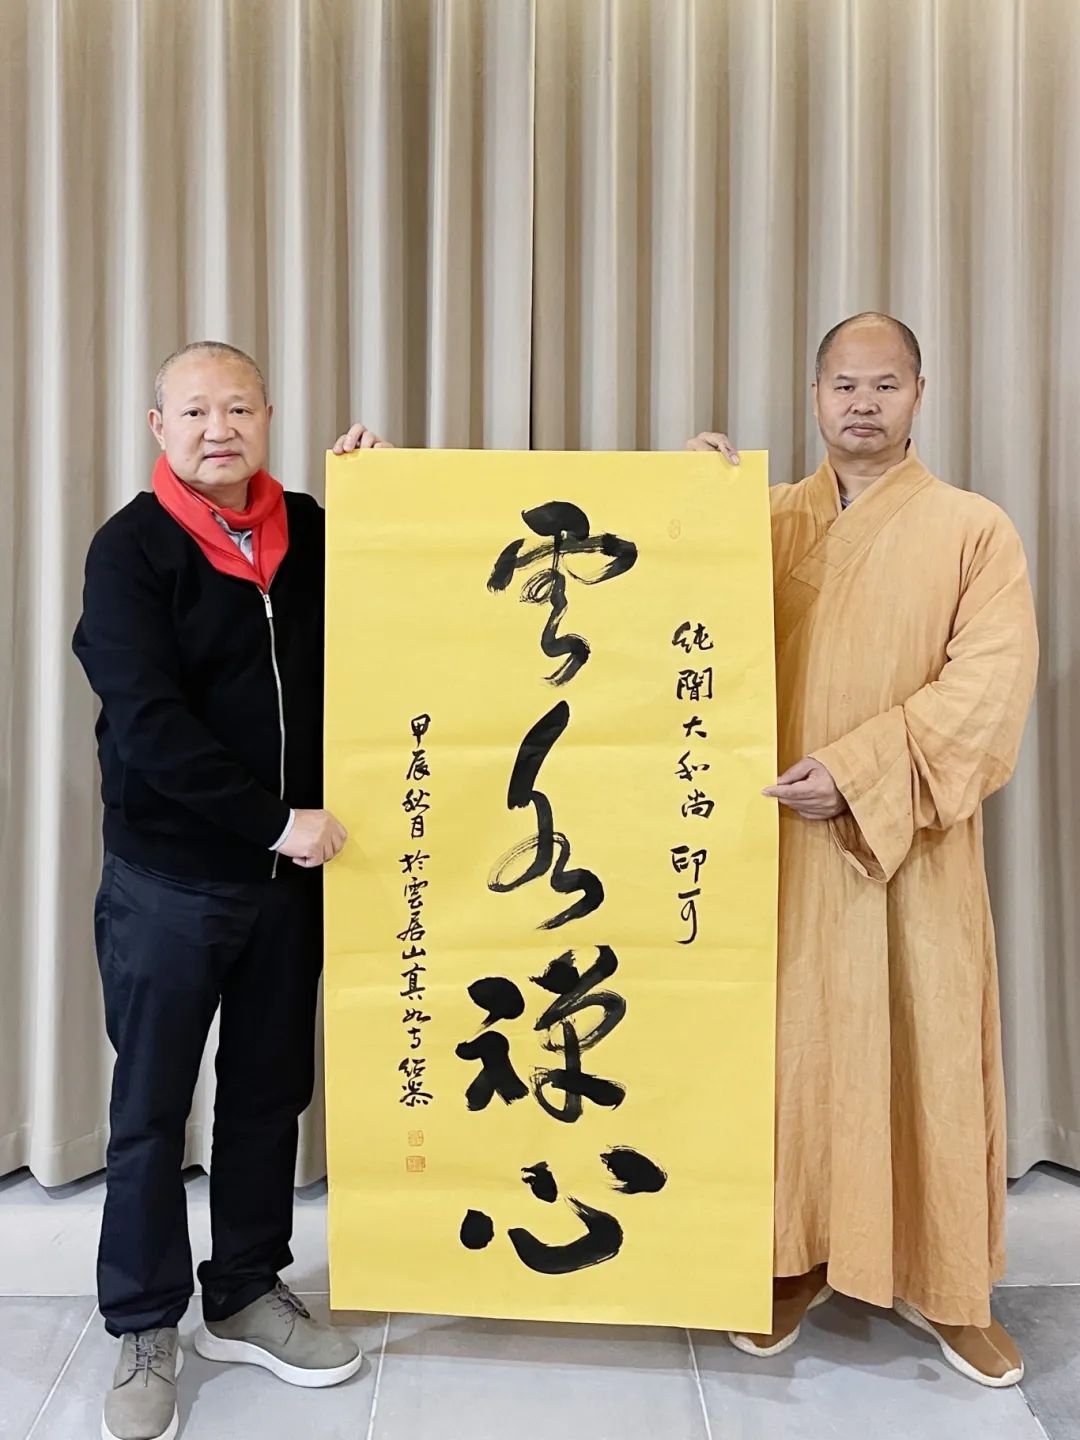 純聞大和尚 印可
雲水禪心
甲辰秋月於雲居山真如寺 紹